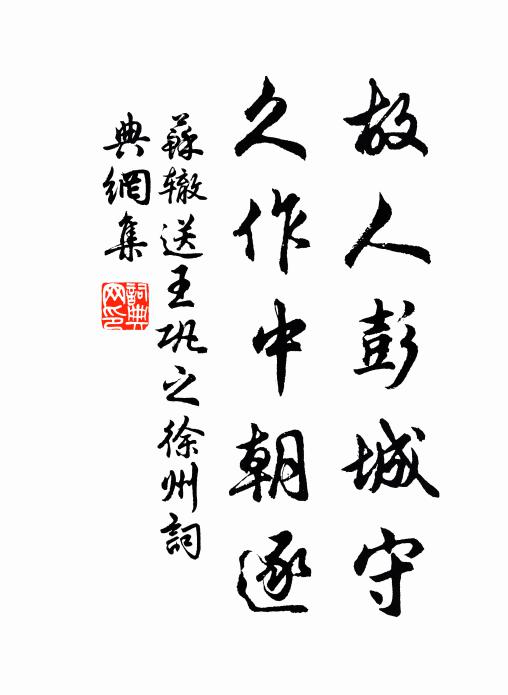 故人彭城守
久作中朝逐
蘇辙送王巩之徐州詞
典網集
詞典网印